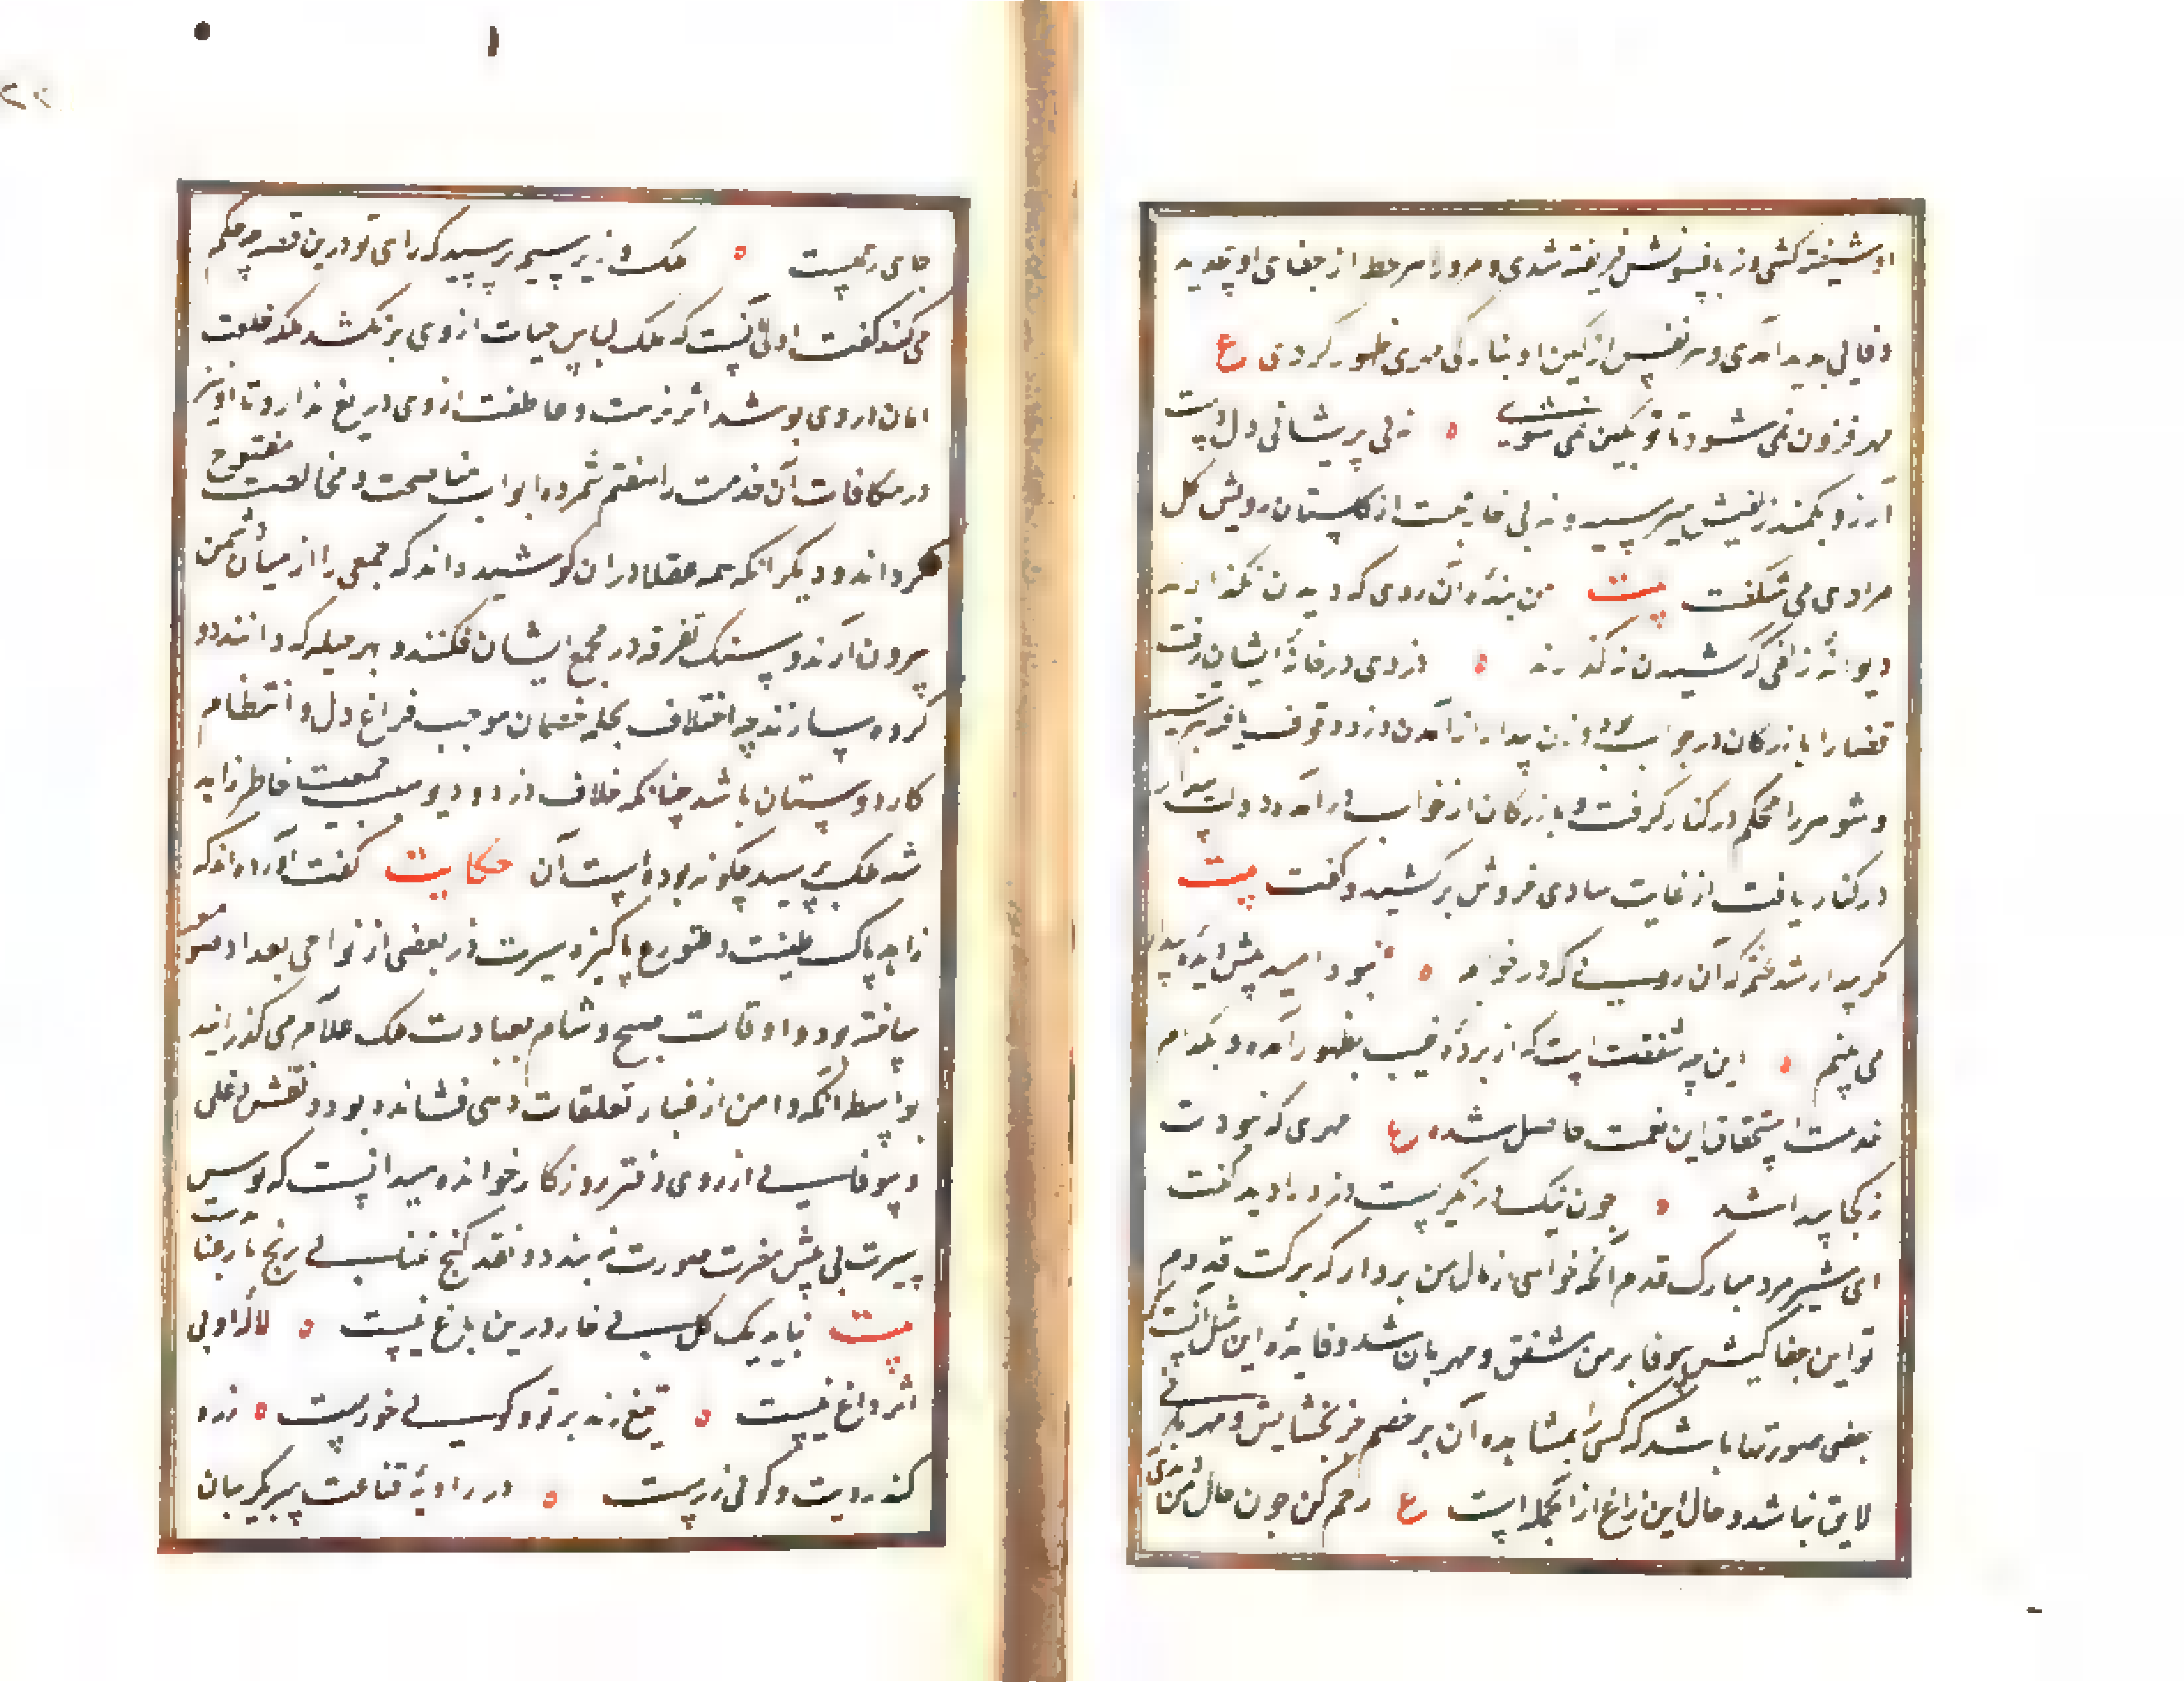 او شیفته کشتی و زبافسونش فریفته شدی و مرد را هر لحظه از جفای او تجدید
وفایی پدید آمدی و هر نفس از کین او بتازگی مهری ظهور کردی ع
مهر فزون نمی شود تا تو بکین نمی شوی ○ نه بی پریشانی دل دست
آرزو بکمند زلفش میرسید و نه بی خار محنت از گلستان رویش گل
مرادی می شکفت بیت من بندهٔ آن روی که دیدن نگذارند
دیوانهٔ زلفی که کشیدن نگذارند ○ دزدی در خانهٔ ایشان رفت
قضا را بازرگان در خواب بود و زن بیدار از آمدن دزد وقوف یافته بترسید
و شوهر را محکم در کنار گرفت و بازرگان از خواب در آمد و دولت بیدار
در کنار یافت از غایت شادی خروش برکشید و گفت بیت
مگر بیدار شد بختم که آن رویی که در خوابم ○ نبود امید پیش دیده بیدار
می بینم ○ این چه شفقت است که از پردهٔ غیب بظهور آمده و بکدام
خدمت استحقاق این نعمت حاصل شده ع مهری که نبودت
ز کجا پیدا شد ○ چون نیک در نگریست دزد را دید گفت
ای شیر مرد مبارک قدم آنچه خواهی از مال من بردار که ببرکت قدوم
تو این جفا کیش بیوفا بر من مشفق و مهربان شد و فایدهٔ این مثل آنست که
بعضی صورتها باشد که کسی را بمشاهدهٔ آن بر خصم جز بخشایش و مهربانی
لایق نباشد و حال این زاغ از آنجمله است ع رحم کن چون حال من دیدی
جای رحمست ○ ملک وزیر سیم پرسید که رای تو درین قصه چه حکم
می کند گفت اولی آنست که ملک لباس حیات از وی برنکشد بلکه خلعت
امان در وی پوشد اثر مرحمت و عاطفت از وی دریغ ندارد تا او نیز
در مکافات آن خدمت را مغتنم شمرده ابواب مناصحت و مخالصت مفتوح
گرداند و دیگر آنکه همه عقلا در آن کوشیده اند که جمعی را از میان دشمن
بیرون آرند و سنگ تفرقه در مجمع ایشان فکنند و بهر حیله که دانند دو
گروه سازند چه اختلاف بکلمه خصمان موجب فراغ دل و انتظام
کار دوستان باشد چنانکه خلاف دزد و دیو سبب جمعیت خاطر زاهد
شد ملک پرسید چگونه بوده است آن حکایت گفت آورده اند که
زاهد پاک طینت و متورع پاکیزه سیرت در بعضی از نواحی بغداد صومعه
ساخته بود و اوقات صبح و شام بعبادت ملک علام می گذرانید
بواسطه آنکه دامن از غبار تعلقات دنیی فشانده بود و نقش دغلی
و بیوفایی از روی دفتر روزگار خوانده میدانست که نوش
مسرت بی نیش مضرت صورت نه بندد و نقد گنج غنا بی رنج بار عنا
بیت نیاید یک گل بی خار درین باغ نیست ○ لالهٔ او بی
اثر داغ نیست ○ تیغ زند بر تو و گویی خورست ○ زرد
کند رویت و گویی زرست ○ در زاویهٔ قناعت سر بگریبان